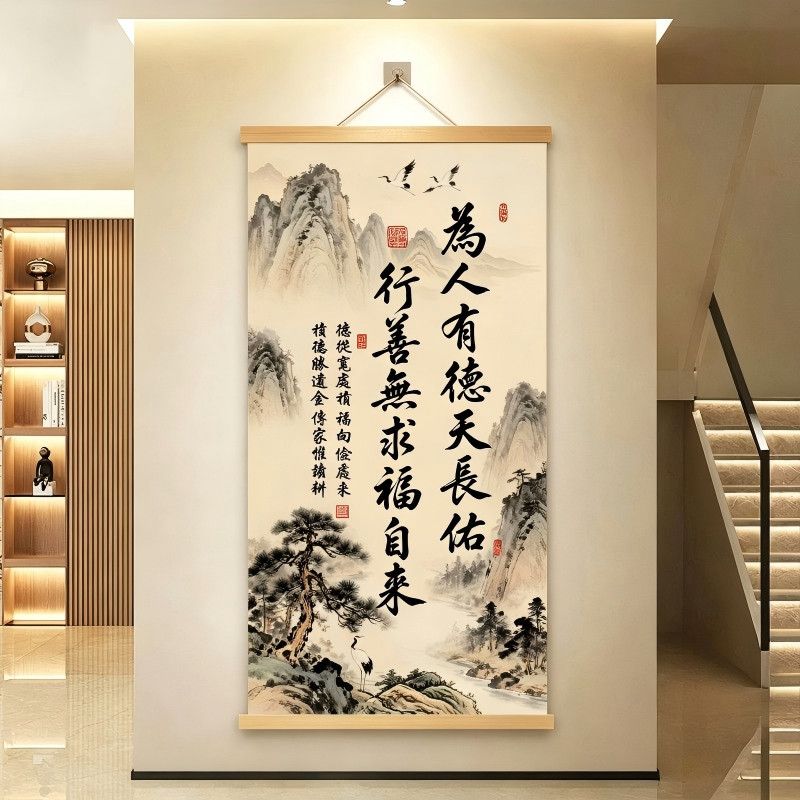 為人有德天長佑
行善無求福自来
德從寬處積福向儉處来
積德勝遺金傳家惟讀耕